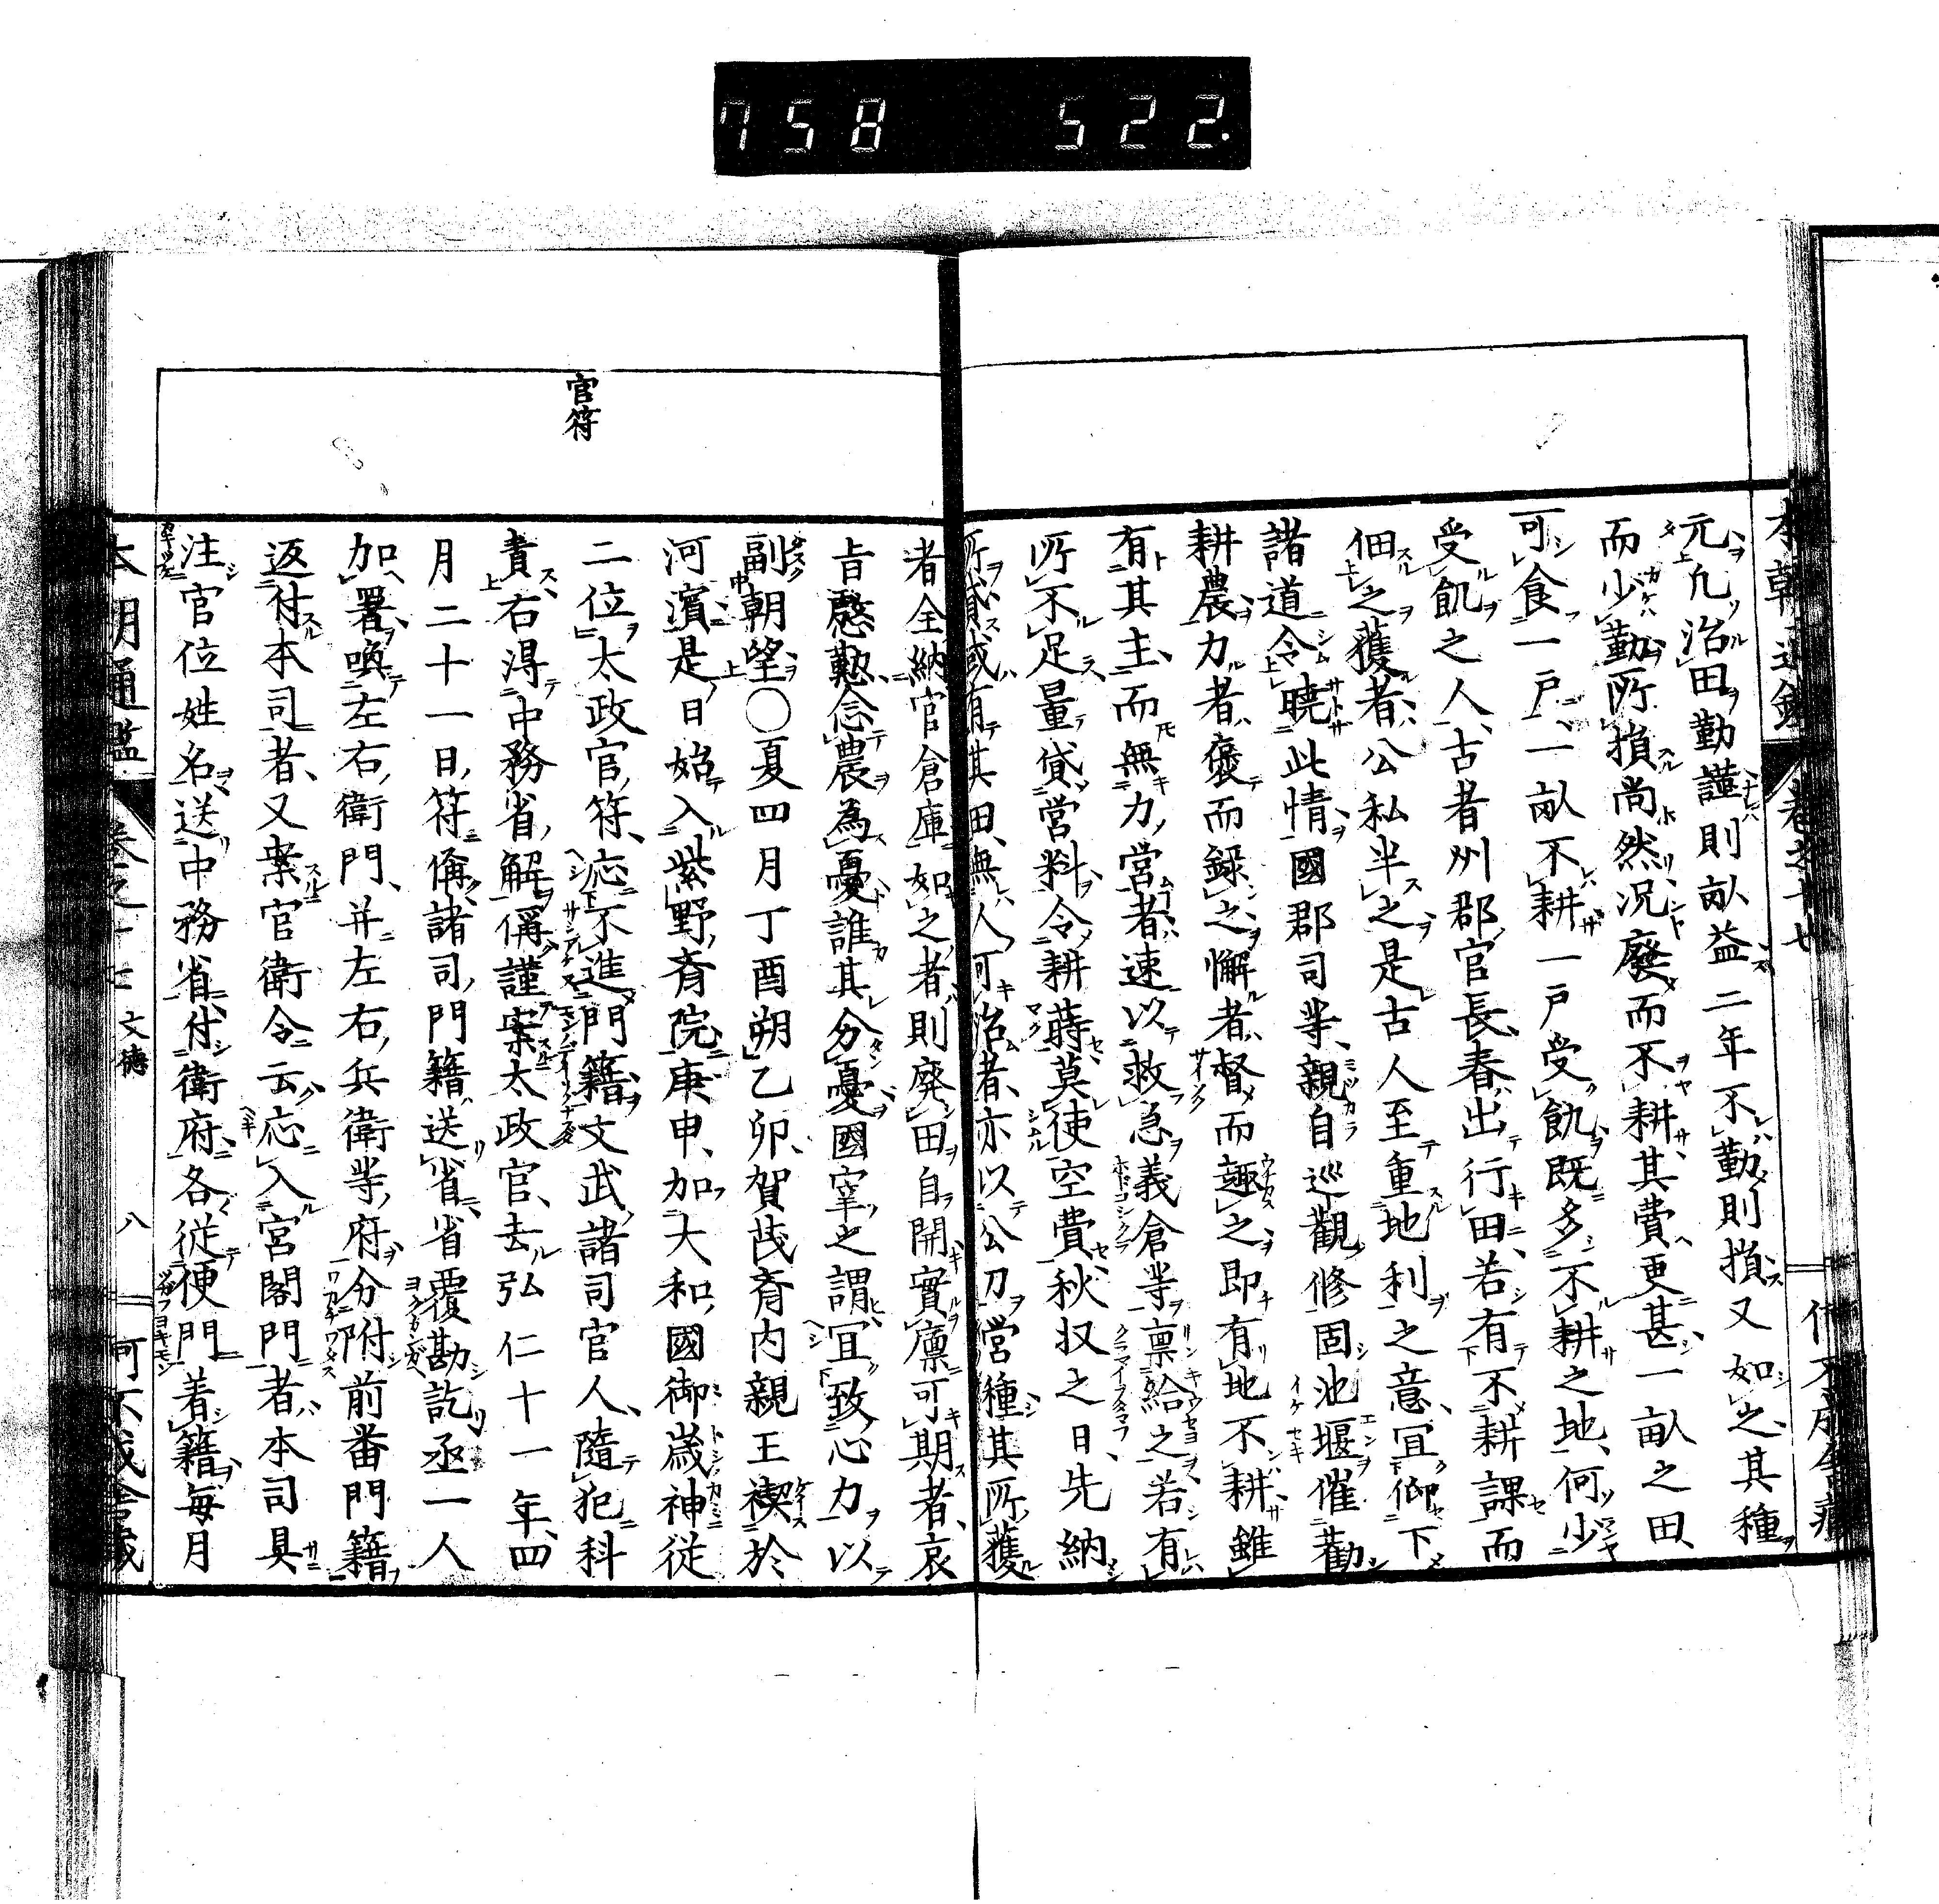 758 522.
元凡治田勤謹則畝益二年不勤則損又如之其種
而少勤所損尚然况廢而不耕其費更甚一畝之田
可食一戸一畝不耕一戸受飢既多不耕之地何少
受飢之人古者州郡官長春出行田若有不耕課而
佃之獲者公私半之是古人至重地利之意宜仰下
諸道令曉此情國郡司等親自巡觀修固池堰催勸
耕農力者褒而録之懈者督而趣之即有地不耕雖
有其主而無力營者速以救急義倉等稟給之若有
所不足量貸営料令耕蒔莫使空費秋収之日先納
所貸或有其田無人可治者亦以公力営種其所獲
者全納官倉庫如之者則廢田自開實廪可期者哀
㫖慇懃念農為憂誰其分憂國宰之謂宜致心力以
副朝望〇夏四月丁酉朔乙卯賀茂斎内親王禊於
河濱是日始入紫野斎院庚申加大和國御歳神従
二位太政官符応不進門籍文武諸司官人隨犯科
責右得中務省解偁謹案太政官去弘仁十一年四
月二十一日符偁諸司門籍送省省覆勘訖丞一人
加署喚左右衛門并左右兵衛等府分附前番門籍
返付本司者又案官衛令云応入宮閤門者本司具
注官位姓名送中務省付衛府各従便門着籍毎月
官符
本朝通鑑 卷之十七 文徳 八